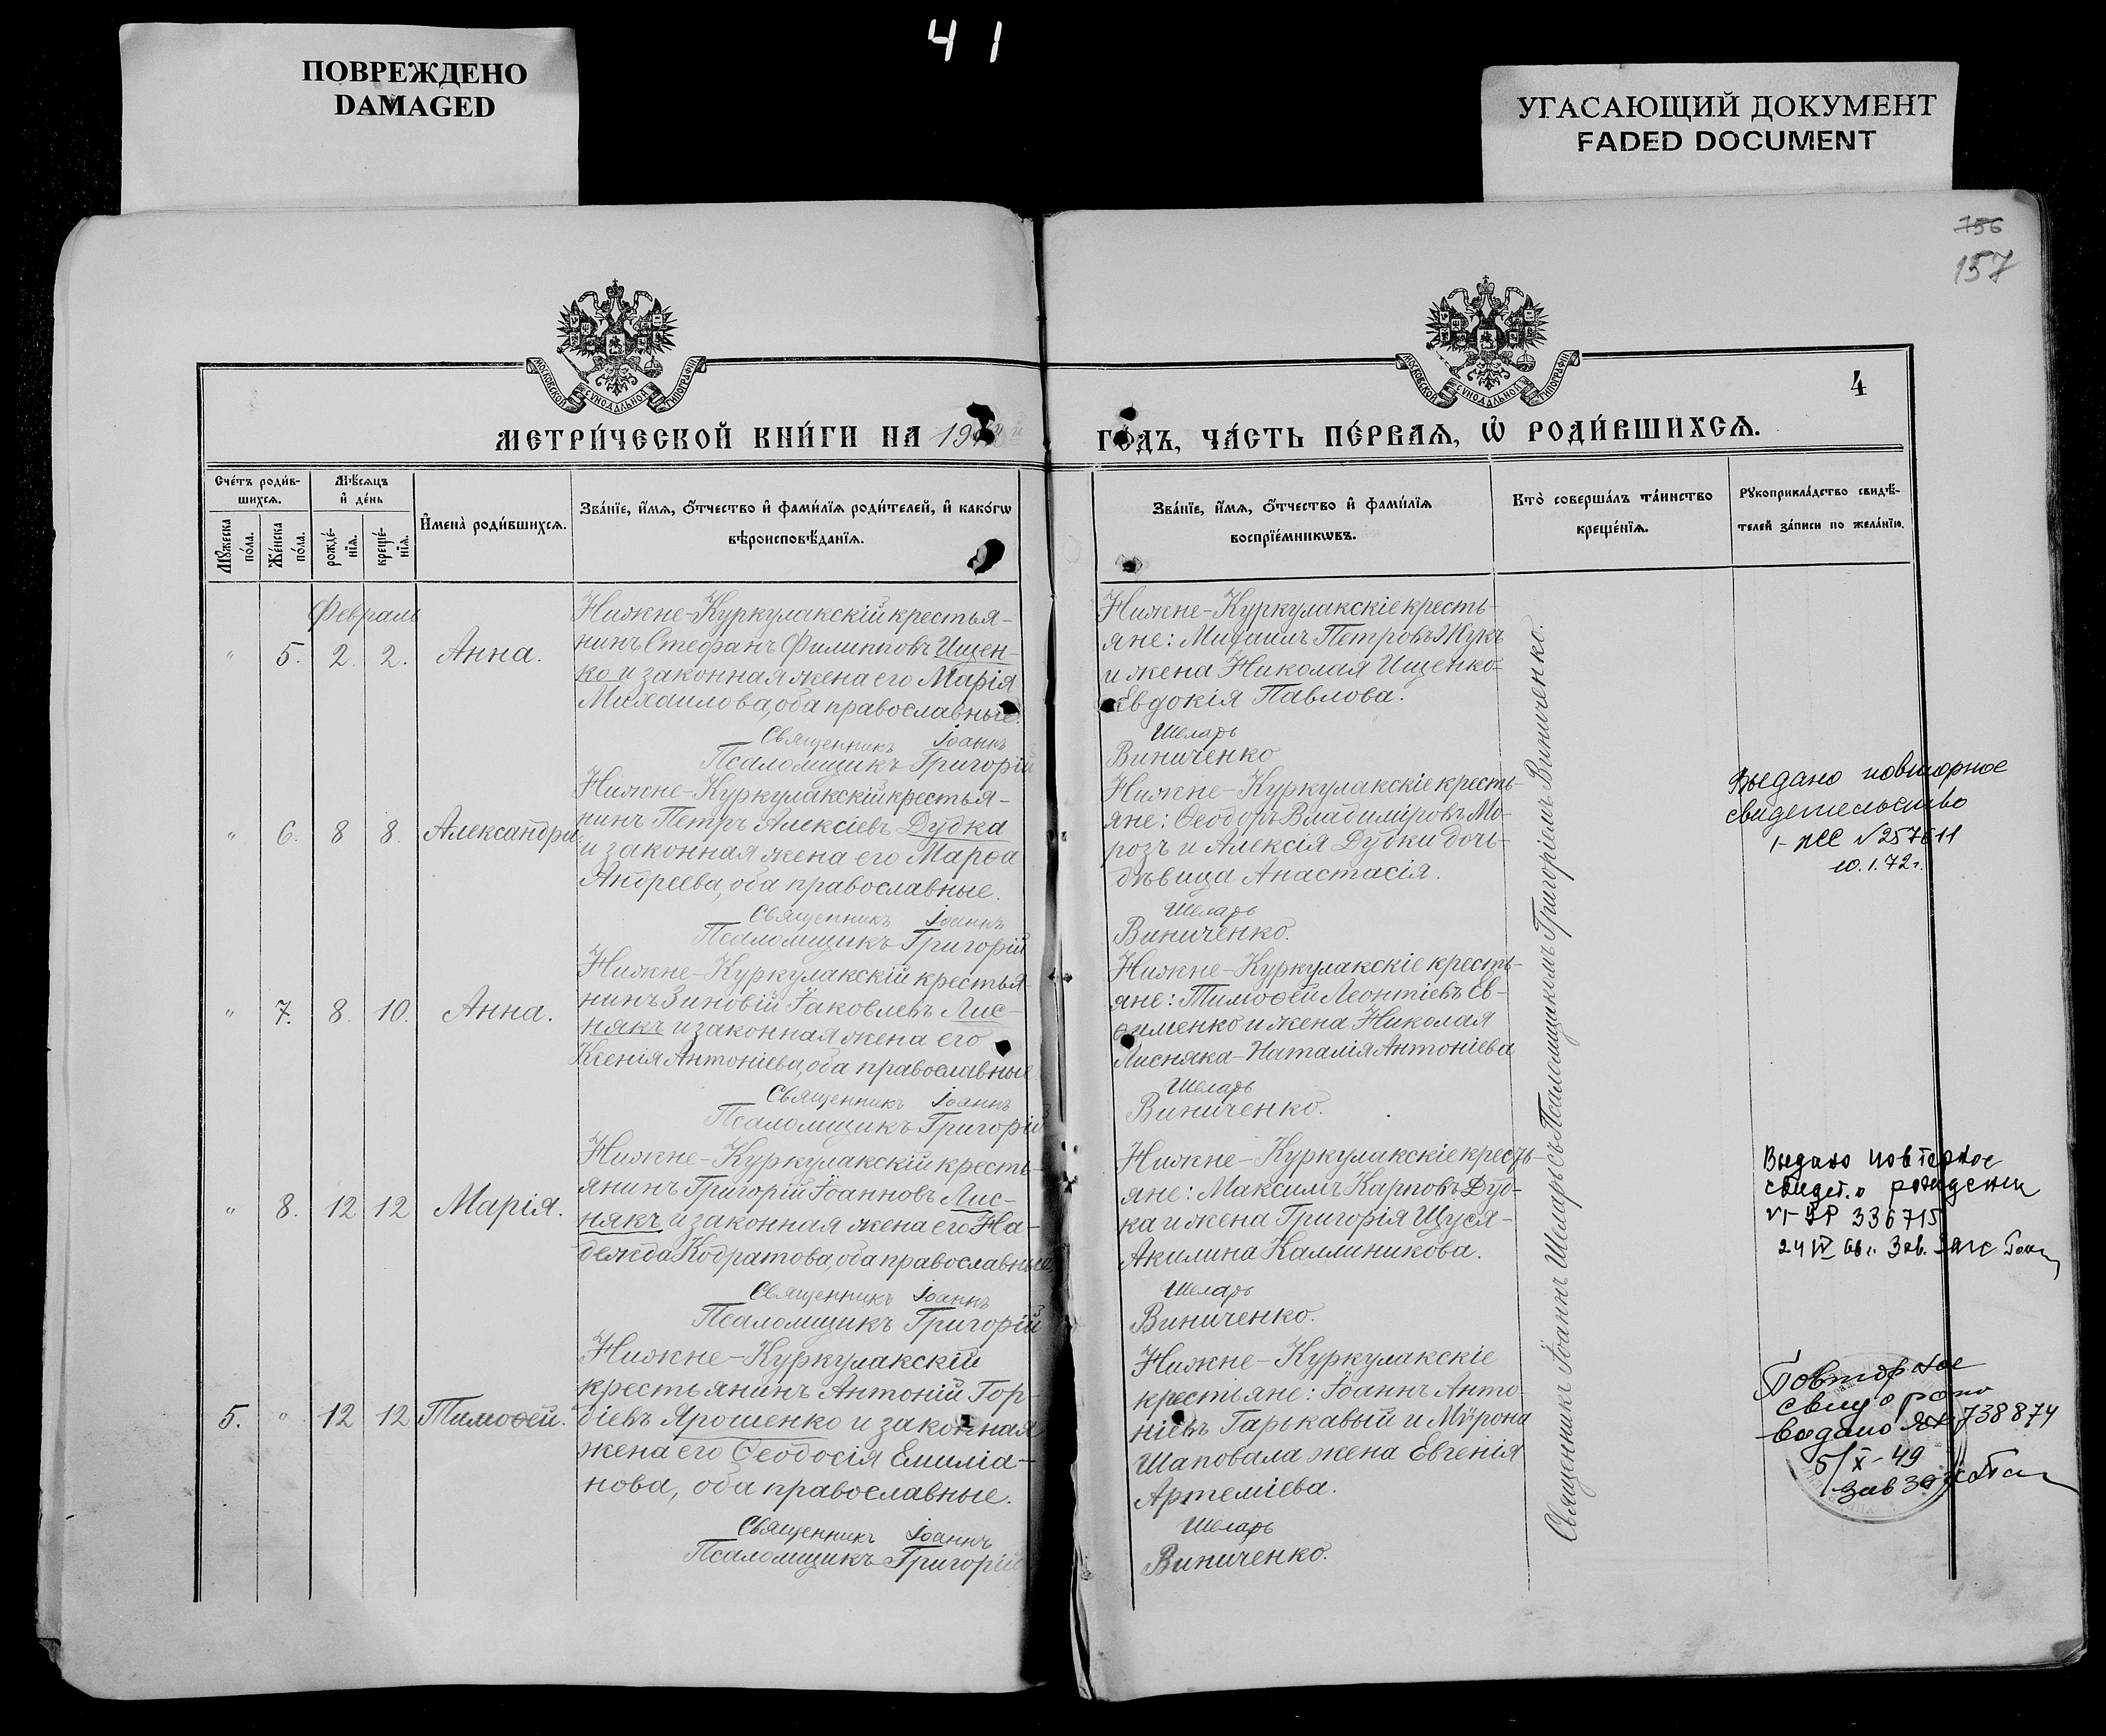 41
ПОВРЕЖДЕНО
DAMAGED
УГАСАЮЩИЙ ДОКУМЕНТ
FADED DOCUMENT
756
157
МОСКОВСКОЙ СѴНОДАЛЬНОЙ ТИПОГРАФІИ
МОСКОВСКОЙ СѴНОДАЛЬНОЙ ТИПОГРАФІИ
4
МЕТРИ́ЧЕСКОЙ КНИ́ГИ НА 191
ГО́ДЪ, ЧА́СТЬ ПЕ́РВАѦ, Ѡ҆ РОДИ́ВШИХСѦ.
Сче́тъ роди́в-
шихсѧ.
Мꙋ́жеска
по́ла.
Же́нска
по́ла.
Мѣ́сѧцъ
и҆ де́нь
рожде́-
нїѧ.
креще́-
нїѧ.
И҆мена̀ роди́вшихсѧ.
Зва́нїе, и҆́мѧ, ѻ҆́тчество и҆ фами́лїѧ роди́телей, и҆ како́гѡ
вѣроисповѣ́данїѧ.
Зва́нїе, и҆́мѧ, ѻ҆́тчество и҆ фами́лїѧ
воспрїе́мникѡвъ.
Кто̀ соверша́лъ та́инство
креще́нїѧ.
Рꙋкоприкла́дство свидѣ́-
телей за́писи по жела́нїю.
Февраль
" 5. 2. 2. Анна.
Нижне-Куркулакскій крестья-
нинъ Стефанъ Филипповъ Ищен-
ко и законная жена его Марія
Михаилова, оба православные.
Священникъ Іоаннъ
Псаломщикъ Григорій
Нижне-Куркулакскіе кресть-
яне: Михаилъ Петровъ Жукъ
и жена Николая Ищенко-
Евдокія Павлова.
Шеларь
Виниченко
" 6. 8 8. Александра.
Нижне-Куркулакскій крестья-
нинъ Петръ Алексіевъ Дудка
и законная жена его Марѳа
Андреева, оба православные.
Священникъ Іоаннъ
Псаломщикъ Григорій
Нижне-Куркулакскіе кресть-
яне: Ѳеодоръ Владиміровъ Мо-
розъ и Алексія Дудки дочь-
дѣвица Анастасія.
Шеларь
Виниченко.
Выдано повторное
свидетельство
N 257611
10.1.72г.
" 7. 8. 10. Анна.
Нижне-Куркулакскій крестья-
нинъ Зиновій Іаковлевъ Лис-
някъ и законная жена его
Ксенія Антоніева, оба православные
Священникъ Іоаннъ
Псаломщикъ Григорій
Нижне-Куркулакскіе кресть-
яне: Тимоѳей Леонтіевъ Ев-
ѳименко и жена Николая
Лисняка-Наталія Антоніева
Шеларь
Виниченко.
" 8. 12 12 Марія.
Нижне-Куркулакскій кресть-
янинъ Григорій Іоанновъ Лис-
някъ и законная жена его На-
дежда Кодратова, оба православные,
Священникъ Іоаннъ
Псаломщикъ Григорій
Нижне-Куркулакскіе кресть-
яне: Максимъ Карповъ Дуд-
ка и жена Григорія Щуся-
Акилина Каллиникова.
Шеларь
Виниченко.
Выдано повторное
свидет. о рождении
336715
5. " 12 12 Тимоѳей.
Нижне-Куркулакскій
крестьянинъ Антоній Гор-
діевъ Ярошенко и законная
жена его Ѳеодосія Емиліа-
нова, оба православные.
Священникъ Іоаннъ
Псаломщикъ Григорій
Нижне-Куркулакскіе
крестьяне: Іоаннъ Анто-
ніевъ Гарькавый и Мѵрона
Шаповала жена Евгенія
Артеміева.
Шеларь
Виниченко.
Повторное
выдано 738874
5/X-49
Священникъ Іоаннъ Шеларь съ Псаломщикомъ Григоріемъ Виниченко.